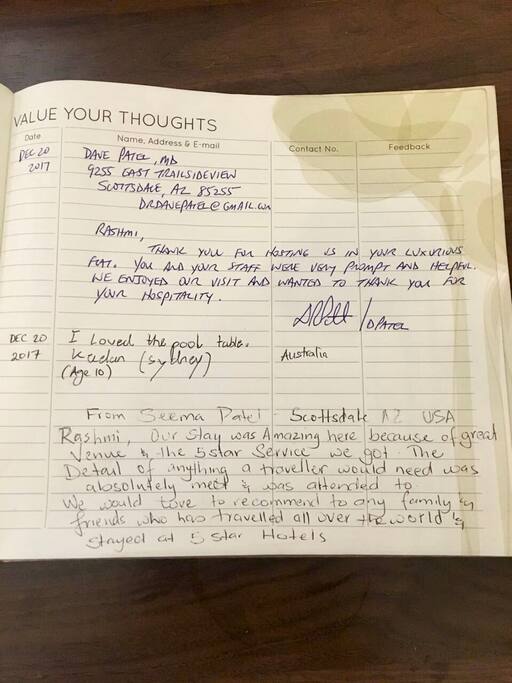 VALUE YOUR THOUGHTS
Date Name, Address & E-mail Contact No. Feedback
DEC 20 DAVE PATEL, MD
2017 9255 EAST TRAILSIDEVIEW
SCOTTSDALE, AZ 85255
DRDAVEPATEL@GMAIL.COM
RASHMI,
THANK YOU FOR HOSTING US IN YOUR LUXURIOUS
FLAT. YOU AND YOUR STAFF WERE VERY PROMPT AND HELPFUL.
WE ENJOYED OUR VISIT AND WANTED TO THANK YOU FOR
YOUR HOSPITALITY.
/DPATEL
DEC 20 I Loved the pool table.
2017 (Sydney) Australia
(Age 10)
From Seema Patel Scottsdale AZ USA
Rashmi, Our Stay was Amazing here because of great
Venue & the 5 star Service we got. The
Detail of anything a traveller would need was
absolutely met & was attended to.
We would love to recommend to any family &
friends who has travelled all over the world &
stayed at 5 star Hotels